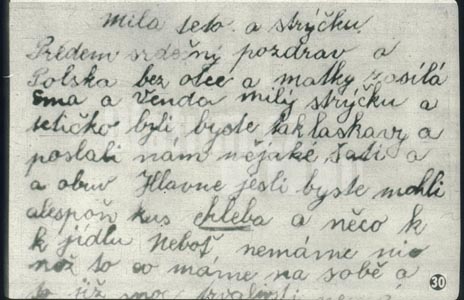 Milá teto a strýčku.
Předem srdečný pozdrav a
Polska bez otce a matky zasílá
Ema a Venda milý strýčku a
tetičko byli byste tak laskavy a
poslali nám nějaké šati a
a obuv Hlavne jesli byste mohli
alespoň kus chleba a něco k
k jídlu Neboť nemáme nic
než to co máme na sobě a
to již
30